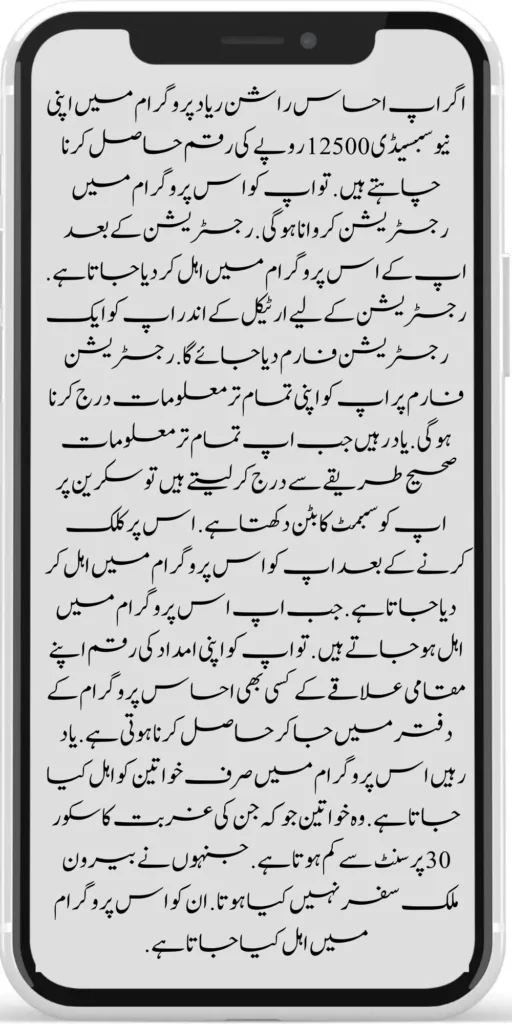 اگر اپ احساس راشن ریاد پروگرام میں اپنی
نیو سبسیڈی 12500 روپے کی رقم حاصل کرنا
چاہتے ہیں. تو اپ کو اس پروگرام میں
رجسٹریشن کروانا ہوگی. رجسٹریشن کے بعد
اپ کے اس پروگرام میں اہل کر دیا جاتا ہے.
رجسٹریشن کے لیے ارٹیکل کے اندر اپ کو ایک
رجسٹریشن فارم دیا جائے گا. رجسٹریشن
فارم پر اپ کو اپنی تمام تر معلومات درج کرنا
ہوگی. یاد رہیں جب اپ تمام تر معلومات
صحیح طریقے سے درج کر لیتے ہیں تو سکرین پر
اپ کو سبمٹ کا بٹن دکھتا ہے. اس پر کلک
کرنے کے بعد اپ کو اس پروگرام میں اہل کر
دیا جاتا ہے. جب اپ اس پروگرام میں
اہل ہو جاتے ہیں. تو اپ کو اپنی امداد کی رقم اپنے
مقامی علاقے کے کسی بھی احساس پروگرام کے
دفتر میں جا کر حاصل کرنا ہوتی ہے. یاد
رہیں اس پروگرام میں صرف خواتین کو اہل کیا
جاتا ہے. وہ خواتین جو کہ جن کی غربت کا سکور
30 پرسنٹ سے کم ہوتا ہے. جنہوں نے بیرون
ملک سفر نہیں کیا ہوتا. ان کو اس پروگرام
میں اہل کیا جاتا ہے.